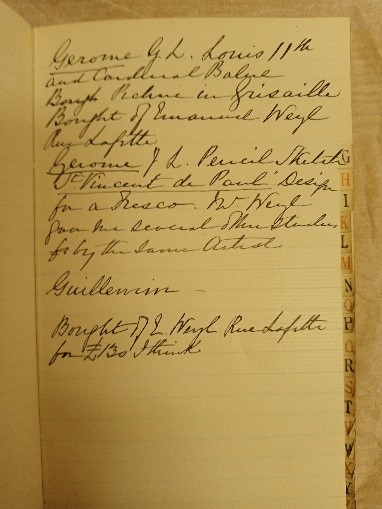 Gerome G L. Louis 11th
and Cardinal Balue
Bought Picture in Grisaille
Bought of Emanuel Weyl
Rue Lafitte
Gerome J L. Pencil Sketch
"St Vincent de Paul" Design
for a Fresco. Mr Weyl
gave me several other studies
by the same Artist
Guillemin -
Bought of E. Weyl Rue Lafitte
for £130 I think
G
H
I
K
L
M
N
O
P
Q
R
S
T
V
W
Y